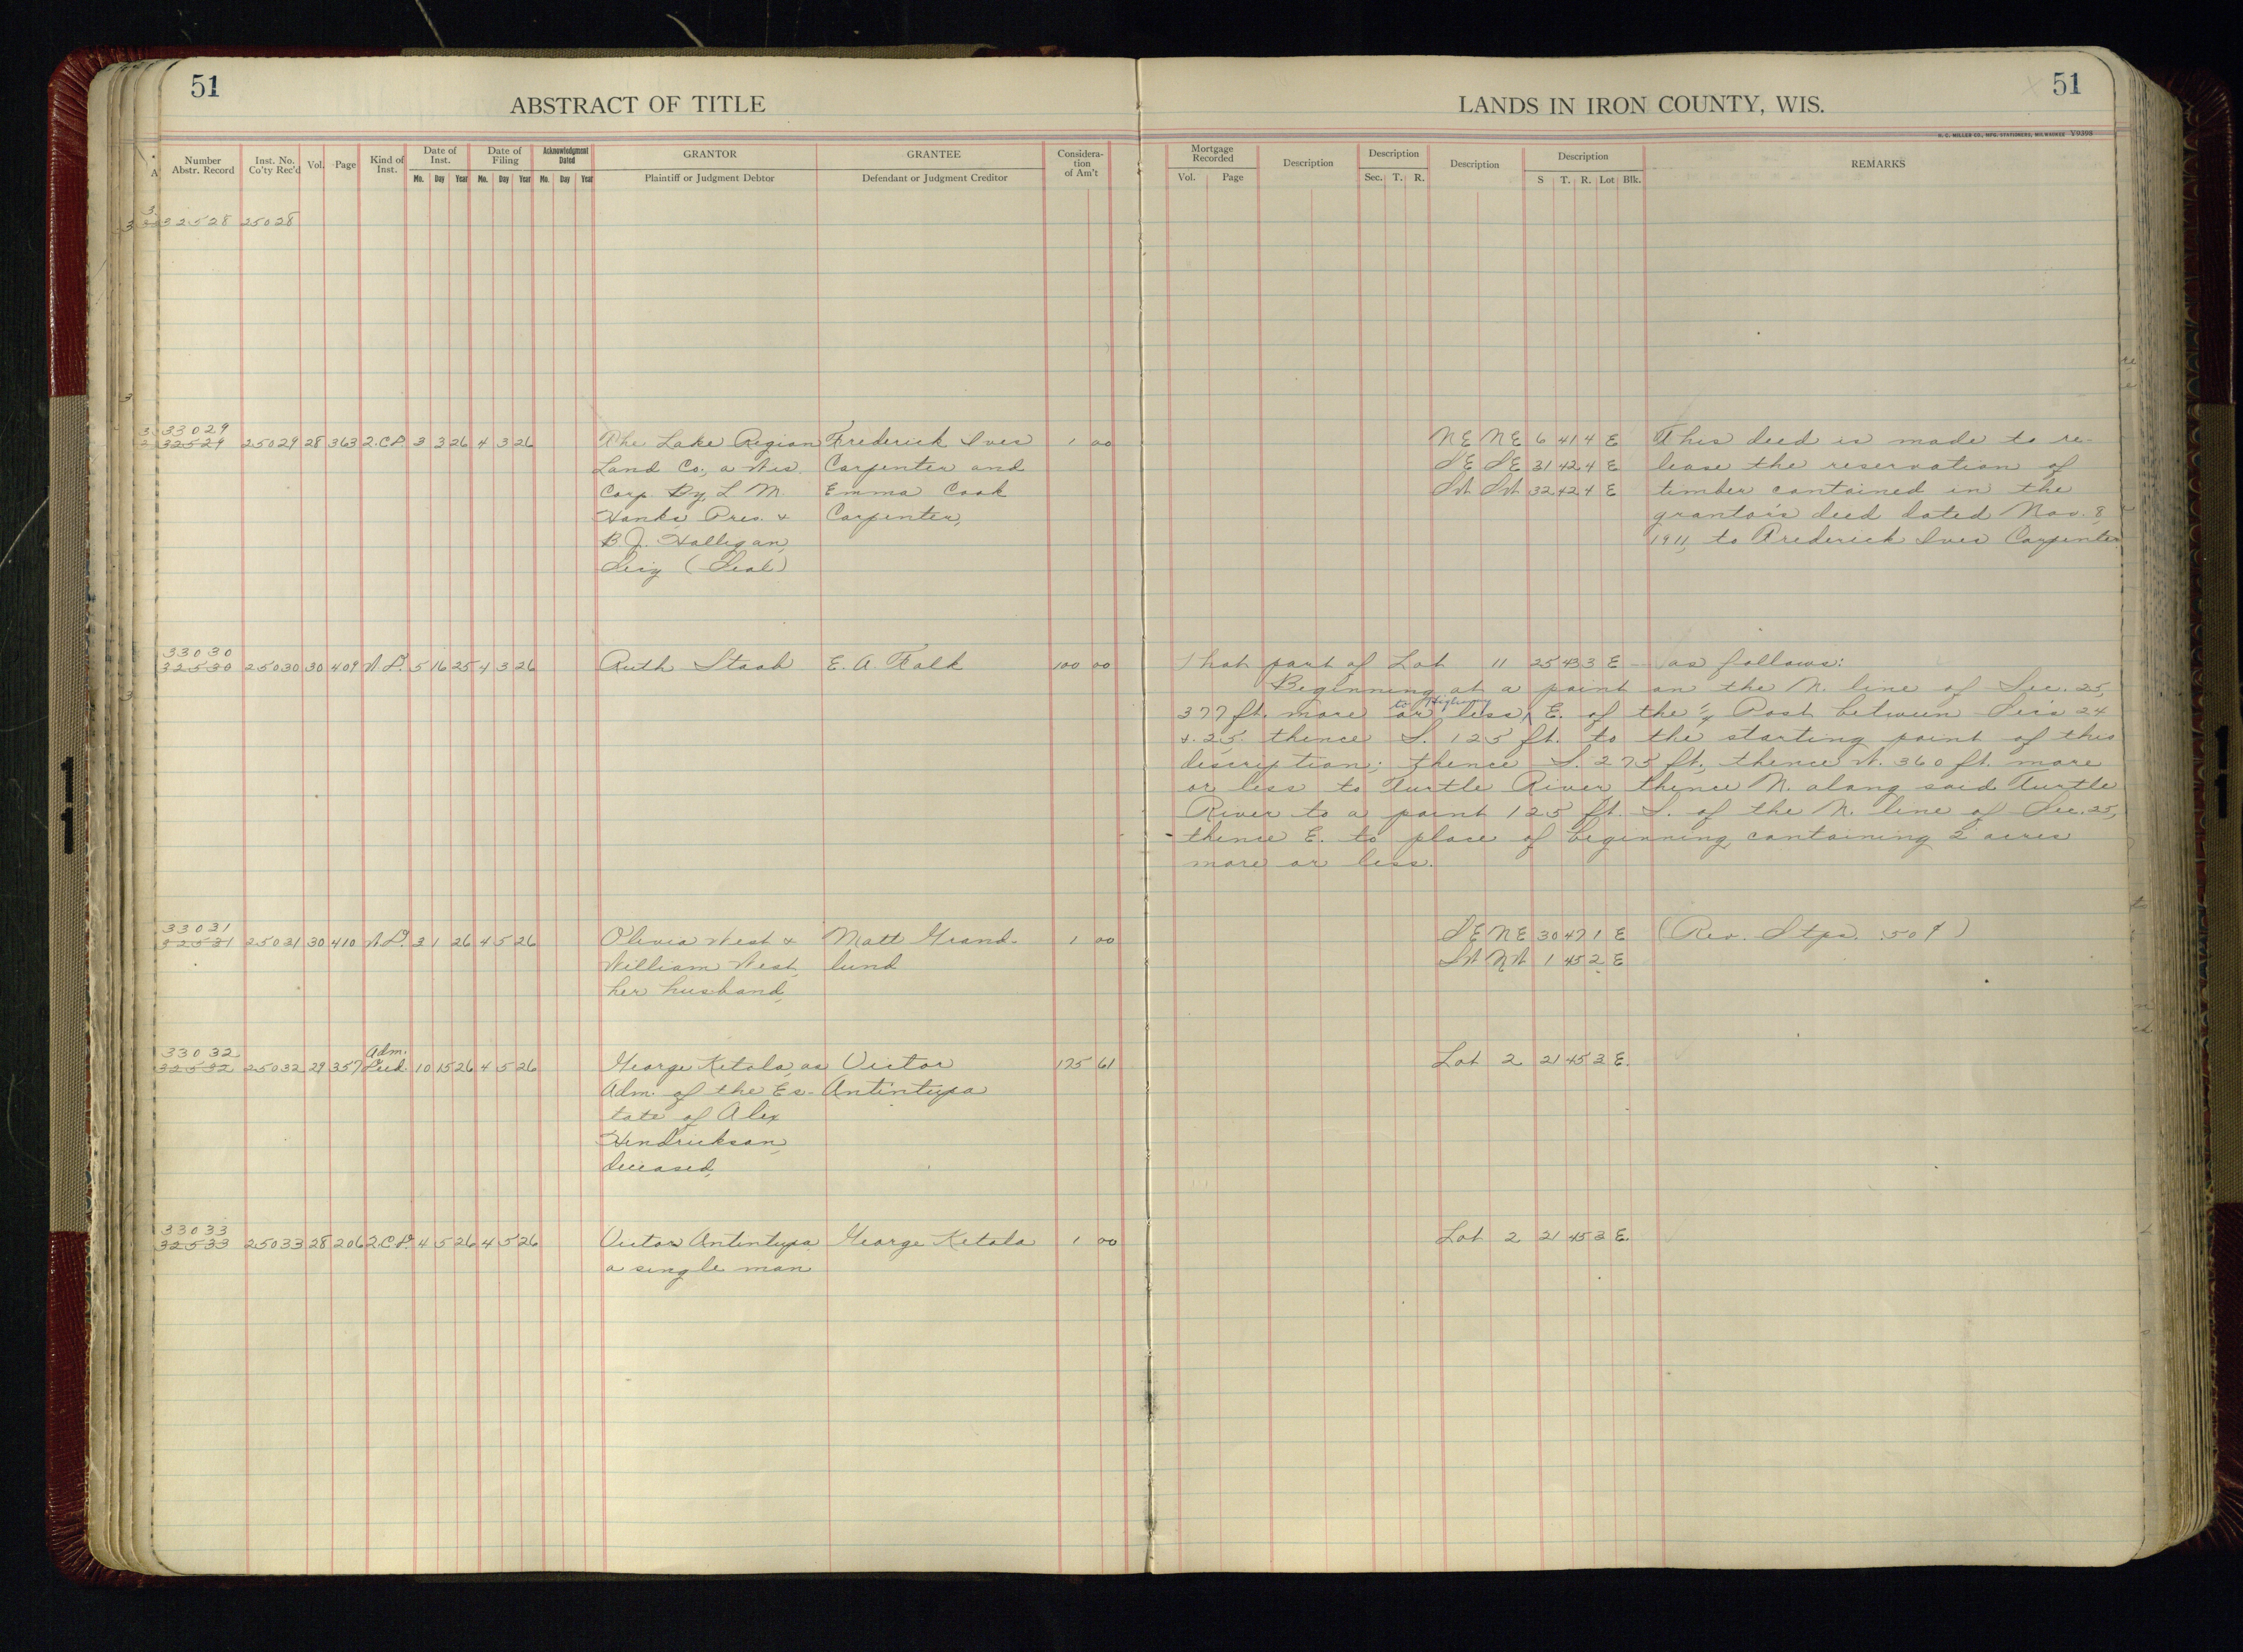 51
51
ABSTRACT OF TITLE
LANDS IN IRON COUNTY, WIS.
H. C. MILLER CO., MFG. STATIONERS, MILWAUKEE Y9398
Number Abstr. Record Inst. No. Co'ty Rec'd Vol. Page Kind of Inst. Date of Inst. Mo. Day Year Date of Filing Mo. Day Year Acknowledgment Dated Mo. Day Year GRANTOR Plaintiff or Judgment Debtor GRANTEE Defendant or Judgment Creditor Considera-tion of Am't
Mortgage Recorded Vol. Page Description Description Sec. T. R. Description Description S T. R. Lot Blk. REMARKS
32528 25028
33029
32529 25029 28 363 2.C.D. 3 3 26 4 3 26 The Lake Region Frederick Ives 1 00 NE NE 6 41 4 E This deed is made to re-
Land Co., a Wis. Carpenter and SE SE 31 42 4 E lease the reservation of
Corp. By L. M. Emma Cook SW SW 32 42 4 E timber contained in the
Hanks, Pres. & Carpenter, grantor's deed dated Nov. 8,
B.J. Halligan, 1911, to Frederick Ives Carpenter
Sec'y (Seal)
33030
32530 25030 30 409 W.D. 5 16 25 4 3 26 Ruth Staab E. A. Falk 100 00 That part of Lot 11 25 43 3 E as follows:
Beginning at a point on the N. line of Sec. 25,
to Highway
377 ft. more or less E. of the 1/4 Post between Sec's 24
& 25. thence S. 125 ft. to the starting point of this
description; thence S. 275 ft., thence W. 360 ft. more
or less to Turtle River thence N. along said Turtle
River to a point 125 ft. S. of the N. line of Sec. 25,
thence E. to place of beginning containing 2 acres
more or less.
33031
32531 25031 30 410 W.D. 3 1 26 4 5 26 Olivia West & Matt Grand- 1 00 SE NE 30 47 1 E (Rev. Stps. .50¢)
William West, lund SW NW 1 45 2 E
her husband,
33032 Adm.
32532 25032 29 357 Deed. 10 15 26 4 5 26 George Ketola, as Victor 175 61 Lot 2 21 45 3 E.
Adm. of the Es- Antintupa
tate of Alex
Hendrickson,
deceased,
33033
32533 25033 28 206 2.C.D. 4 5 26 4 5 26 Victor Antintupa George Ketola 1 00 Lot 2 21 45 3 E.
a single man